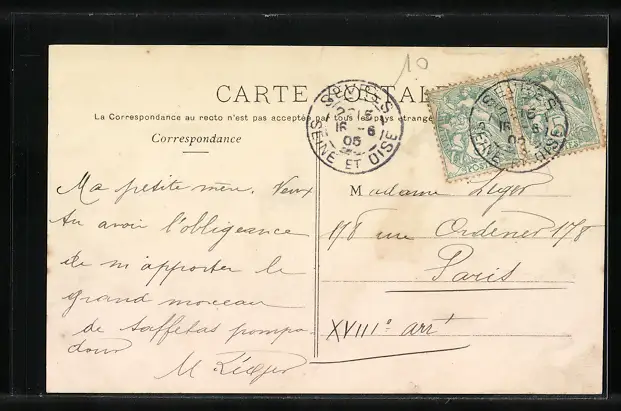 10
CARTE POSTALE
La Correspondance au recto n'est pas acceptée par tous les pays étrang
Correspondance
SEVRES
16 -6
05
SEINE ET OISE
SEVRES
16 -6
05
SEINE ET OISE
Ma petite mère. Veux
tu avoir l'obligeance
de m'apporter le
grand morceau
de taffetas pompa-
dour
M Léger
Madame Léger
178 rue Ordener 178
Paris
XVIIIe arrt